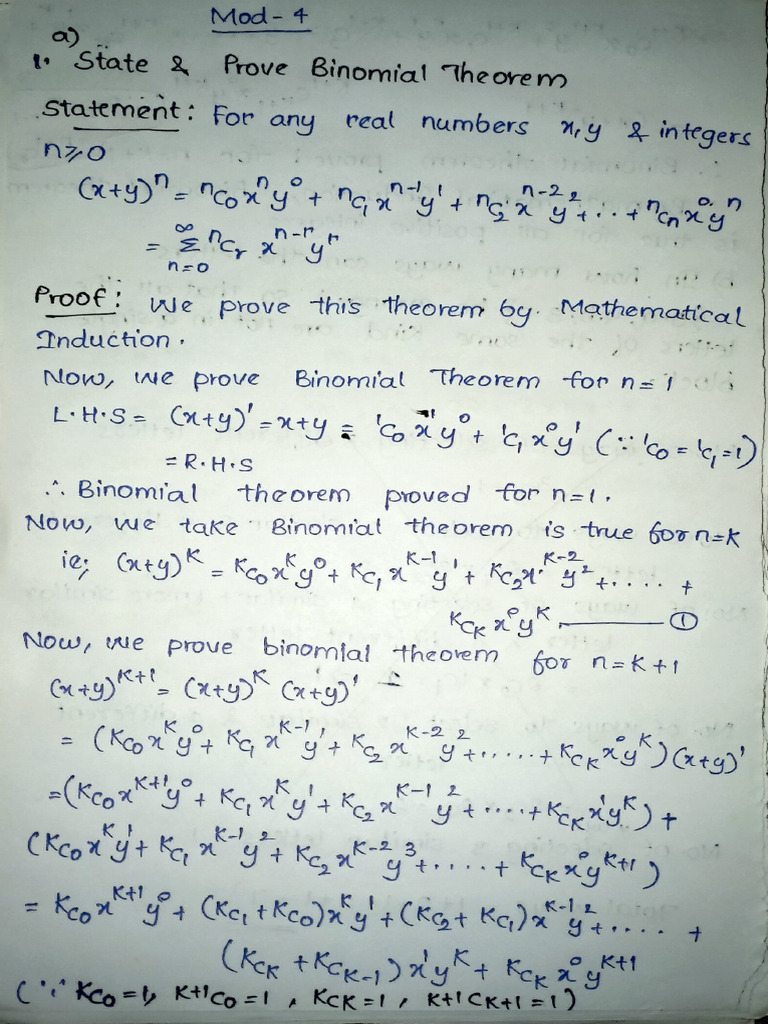 Mod-4
a)
1. State & Prove Binomial Theorem
Statement: For any real numbers x,y & integers
n≥0
(x+y)ⁿ = nC₀ xⁿy⁰ + nC₁ xⁿ⁻¹y¹ + nC₂ xⁿ⁻²y² + .. + nCₙ x⁰yⁿ
= ∞Σn=0 nCᵣ xⁿ⁻ʳyʳ
Proof: We prove this theorem by Mathematical
Induction.
Now, we prove Binomial Theorem for n=1
L.H.S = (x+y)¹ = x+y = ¹C₀ x¹y⁰ + ¹C₁ x⁰y¹ (∵ ¹C₀ = ¹C₁ = 1)
= R.H.S
∴ Binomial theorem proved for n=1.
Now, we take Binomial theorem is true for n=K
ie; (x+y)ᴷ = KC₀ xᴷy⁰ + KC₁ xᴷ⁻¹y¹ + KC₂ xᴷ⁻²y² + .... +
KCᴋ x⁰yᴷ ——— ①
Now, we prove binomial theorem for n=K+1
(x+y)ᴷ⁺¹ = (x+y)ᴷ (x+y)¹
= (KC₀ xᴷy⁰ + KC₁ xᴷ⁻¹y¹ + KC₂ xᴷ⁻²y² + ..... + KCᴋ x⁰yᴷ) (x+y)¹
= (KC₀ xᴷ⁺¹y⁰ + KC₁ xᴷy¹ + KC₂ xᴷ⁻¹y² + .... + KCᴋ x¹yᴷ) +
(KC₀ xᴷy¹ + KC₁ xᴷ⁻¹y² + KC₂ xᴷ⁻²y³ + .... + KCᴋ x⁰yᴷ⁺¹)
= KC₀ xᴷ⁺¹y⁰ + (KC₁ + KC₀) xᴷy¹ + (KC₂ + KC₁) xᴷ⁻¹y² + .... +
(KCᴋ + KCᴋ₋₁) x¹yᴷ + KCᴋ x⁰yᴷ⁺¹
(∵ KC₀ = 1, K+1C₀ = 1, KCᴋ = 1, K+1Cᴋ₊₁ = 1)